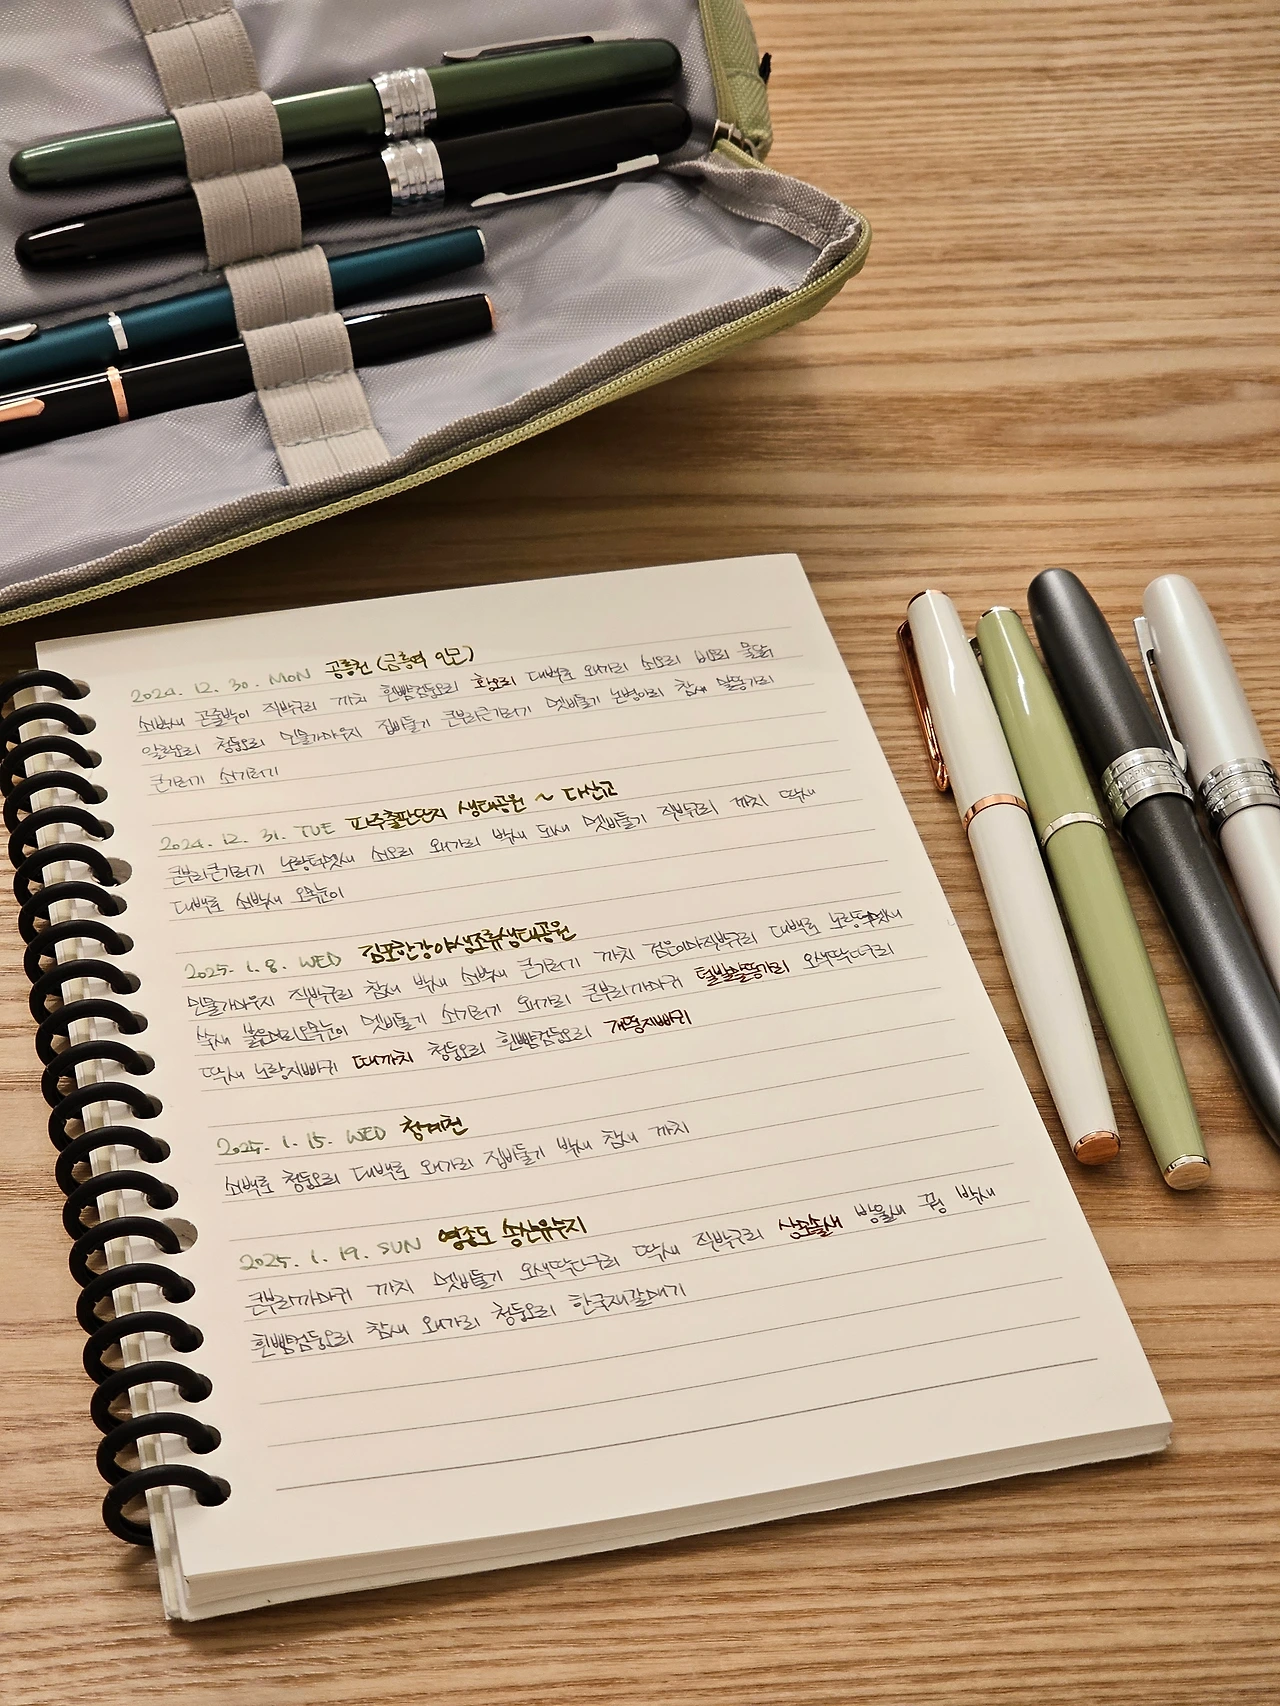 2024. 12. 30. MON 공릉천 (금릉역 인근)
쇠박새 곤줄박이 직박구리 까치 흰뺨검둥오리 황오리 대백로 왜가리 쇠오리 비오리 물닭
알락오리 청둥오리 민물가마우지 집비둘기 큰부리큰기러기 멧비둘기 논병아리 참새 말똥가리
큰기러기 쇠기러기
2024. 12. 31. TUE 파주출판단지 생태공원 ~ 다산교
큰부리큰기러기 노랑턱멧새 쇠오리 왜가리 박새 되새 멧비둘기 직박구리 까치 딱새
대백로 쇠박새 오목눈이
2025. 1. 8. WED 김포한강야생조류생태공원
민물가마우지 직박구리 참새 박새 쇠박새 큰기러기 까치 검은이마직박구리 대백로 노랑턱멧새
쑥새 붉은머리오목눈이 멧비둘기 쇠기러기 왜가리 큰부리까마귀 털발말똥가리 오색딱다구리
딱새 노랑지빠귀 때까치 청둥오리 흰뺨검둥오리 개똥지빠귀
2025. 1. 15. WED 청계천
쇠백로 청둥오리 대백로 왜가리 집비둘기 박새 참새 까치
2025. 1. 19. SUN 영종도 송산유수지
큰부리까마귀 까치 멧비둘기 오색딱다구리 딱새 직박구리 상모솔새 방울새 꿩 박새
흰뺨검둥오리 참새 왜가리 청둥오리 한국재갈매기